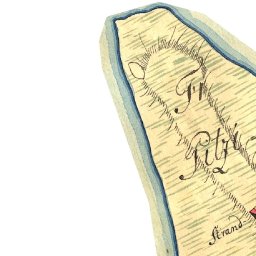 Fr
Pitzi
Strand